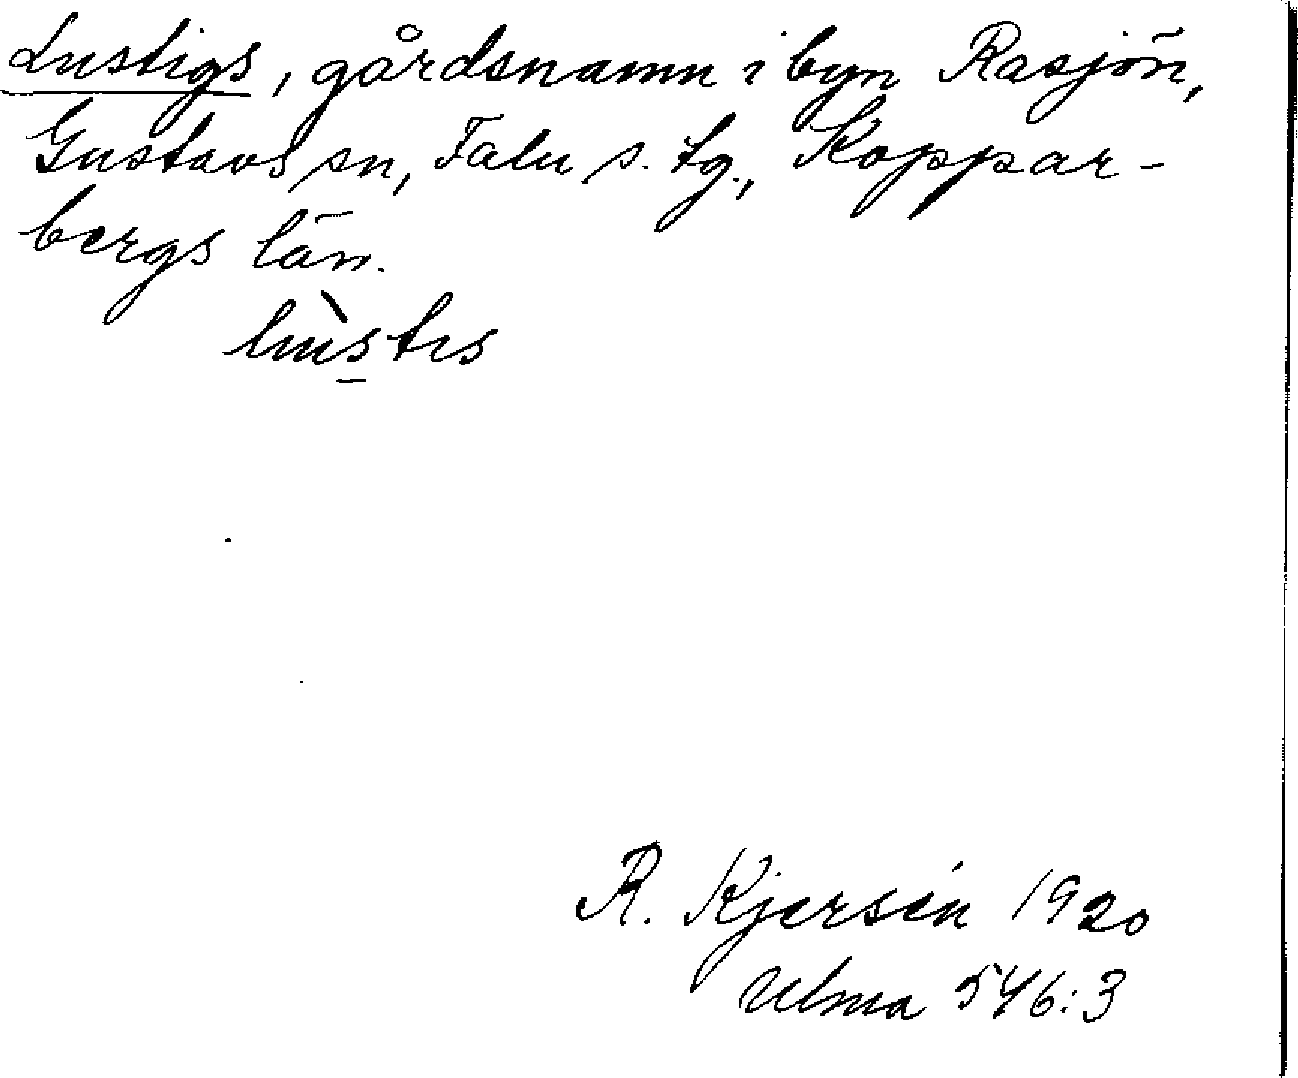 Lustigs, gårdsnamn i byn Rasjön,
Gustavs sn, Falu s. tg., Koppar-
bergs län.
R. Kjersén 1920
Ulma 546:3